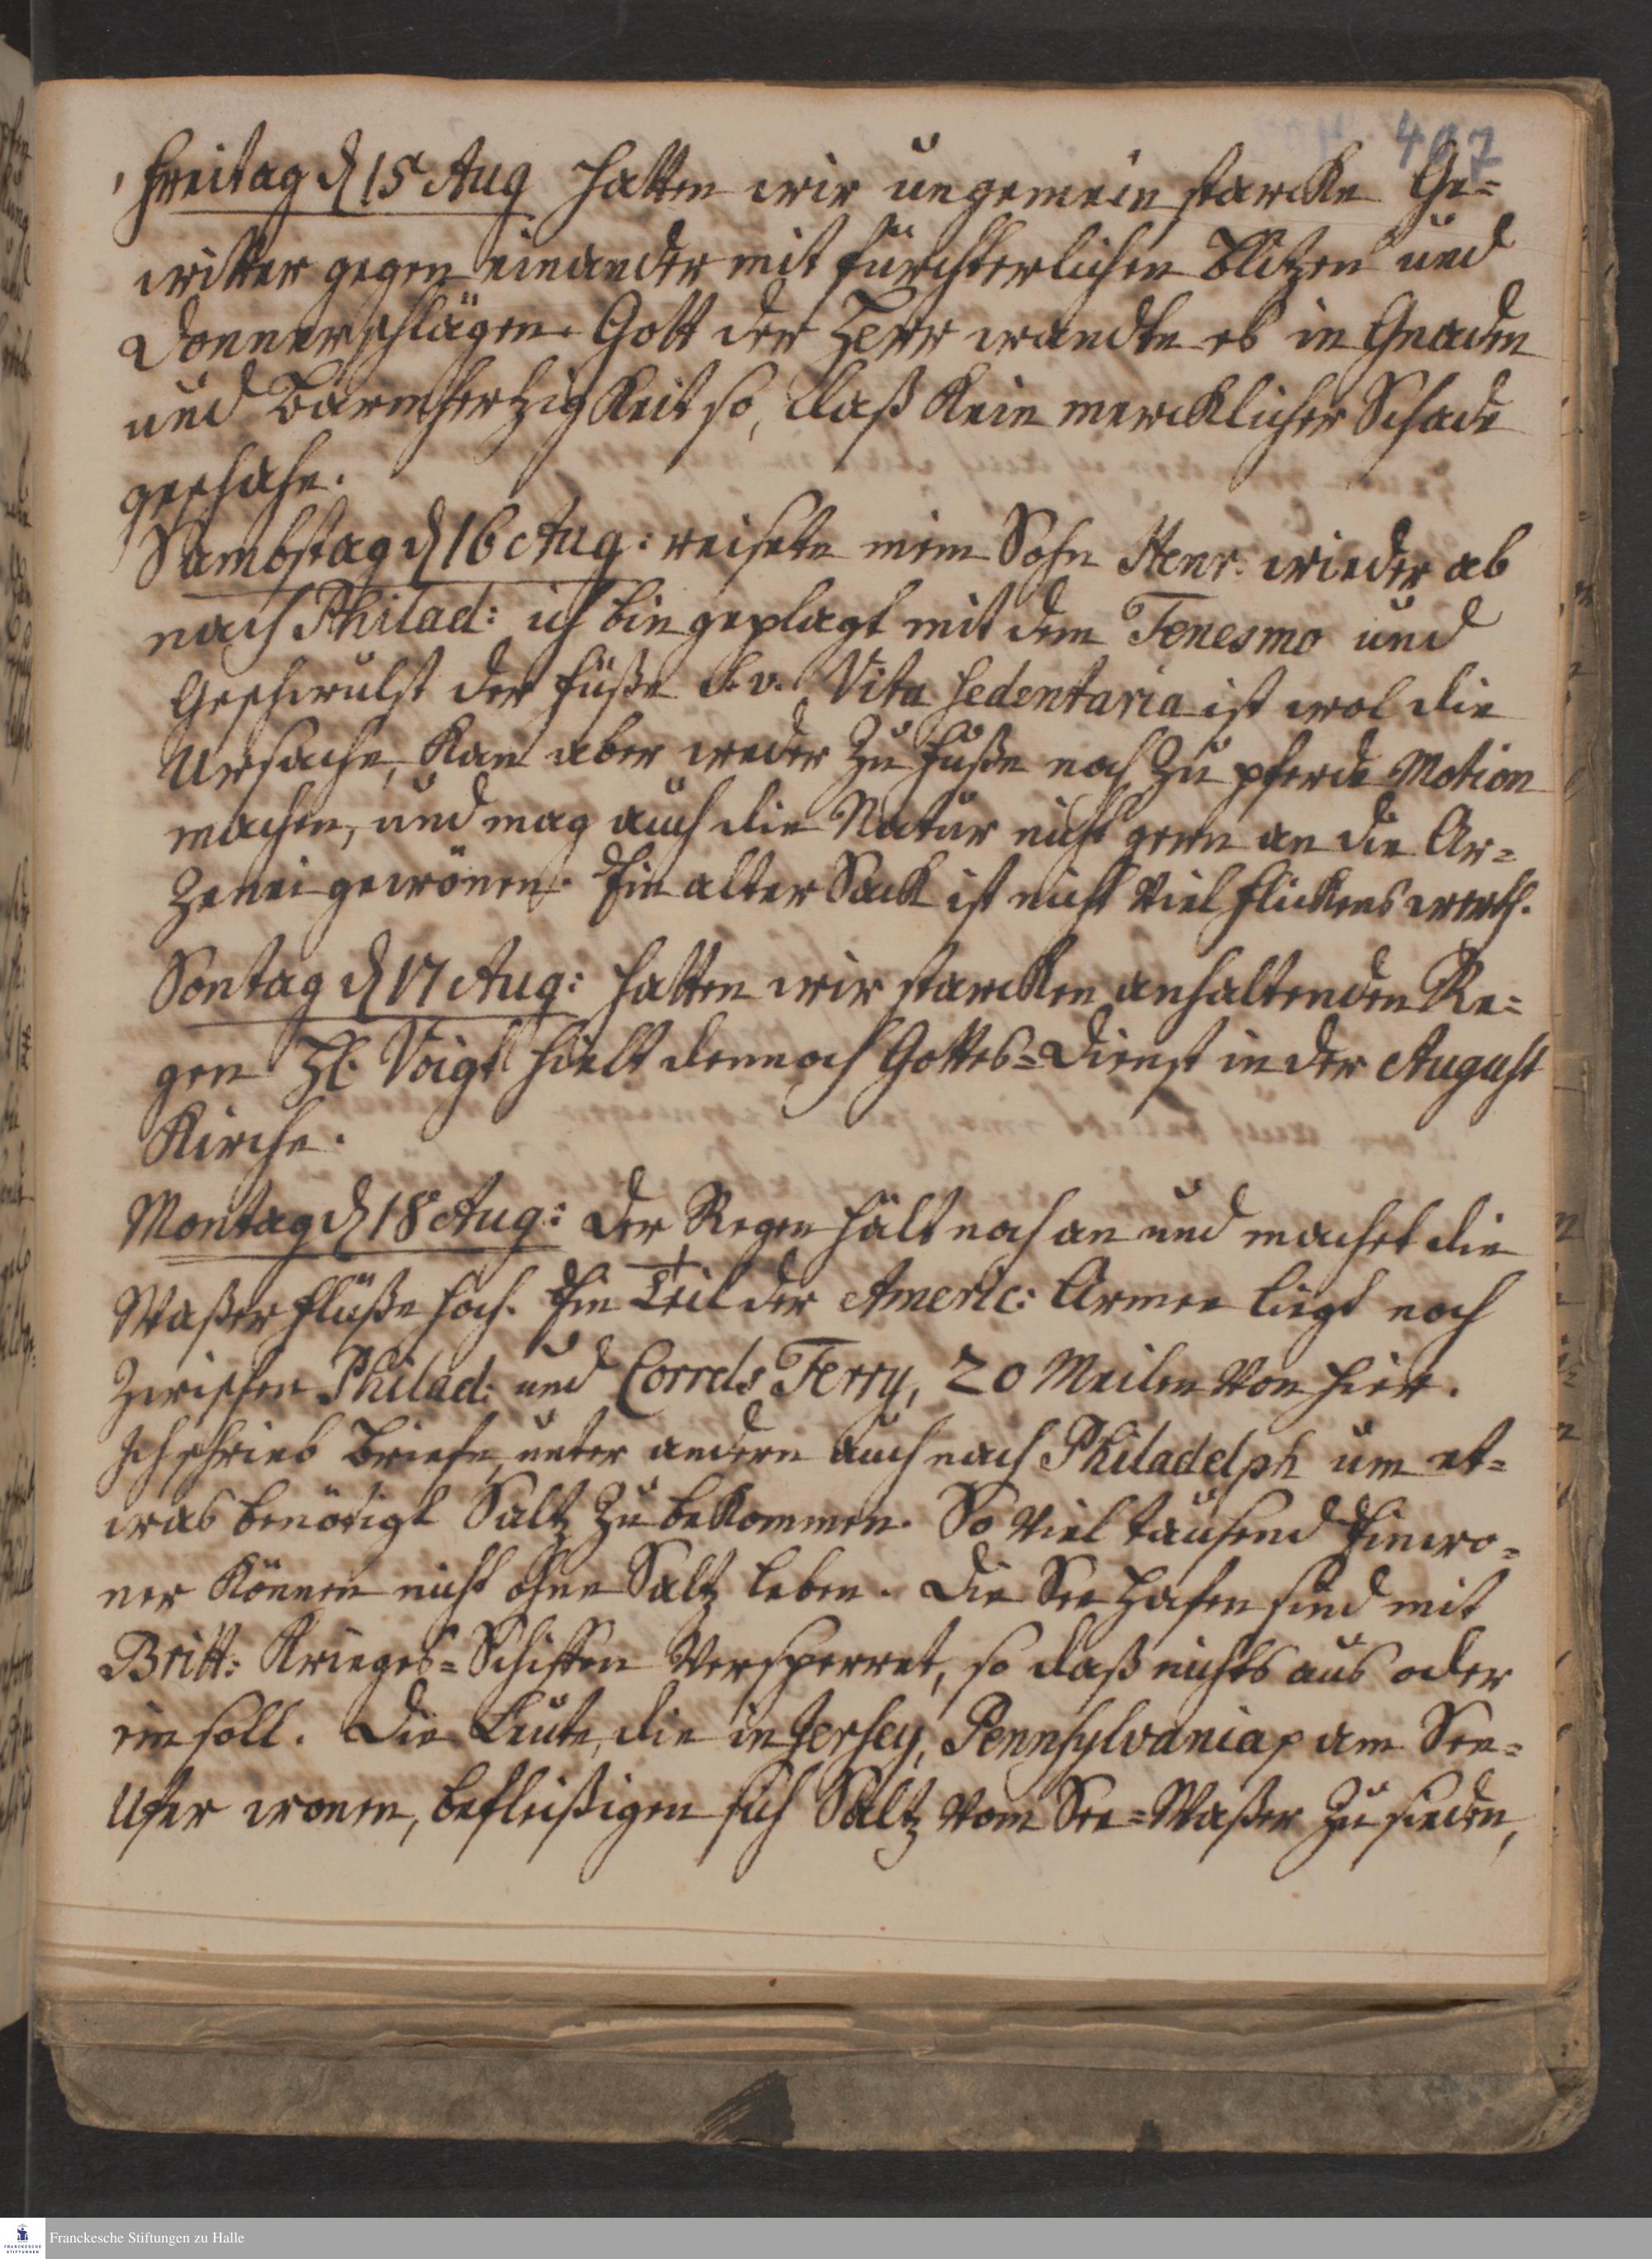 407
Freitag d 15 Aug hatten wir ungemein starcke Ge=
witter gegen einander mit fürchterlichen Blitzen und
Donnerschlägen. Gott der Herr wandte es in Gnaden
und Barmhertzigkeit so, daß kein mercklicher Schade
geschahe.
Sambstag d 16 Aug: reisete mein Sohn Henr. wieder ab
nach Philad: ich bin geplagt mit dem Tenesmo und
Geschwulst der Füße s. v. Vita sedentaria ist wol die
Ursache, kan aber weder zu Fuße noch zu pferde Motion
machen, und mag auch die Natur nicht gern an die Ar=
zenei gewönen. Ein alter Sack ist nicht viel flickens werth.
Sontag d 17 Aug: hatten wir starcken anhaltenden Re=
gen H. Voigt hielt dennoch Gottes=Dienst in der August
Kirche.
Montag d 18 Aug: Der Regen hält noch an und machet die
Waßer flüße hoch. Ein Teil der Americ: Armee liegt noch
zwischen Philad: und Correls Ferry, 20 Meilen von hier.
Ich schrieb Briefe, unter andern auch nach Philadelph um et=
was benötigt Saltz zu bekommen. So viel tausend Einwo=
ner können nicht ohne Saltz leben. Die See Hafen sind mit
Britt: Krieges=Schiffen versperret, so daß nichts aus oder
ein soll. Die Leute, die in Jersey, Pennsylvania p am See=
Ufer wonen, befleißigen sich Saltz vom See=Waßer zu sieden,
Franckesche Stiftungen zu Halle
FRANCKESCHE
STIFTUNGEN